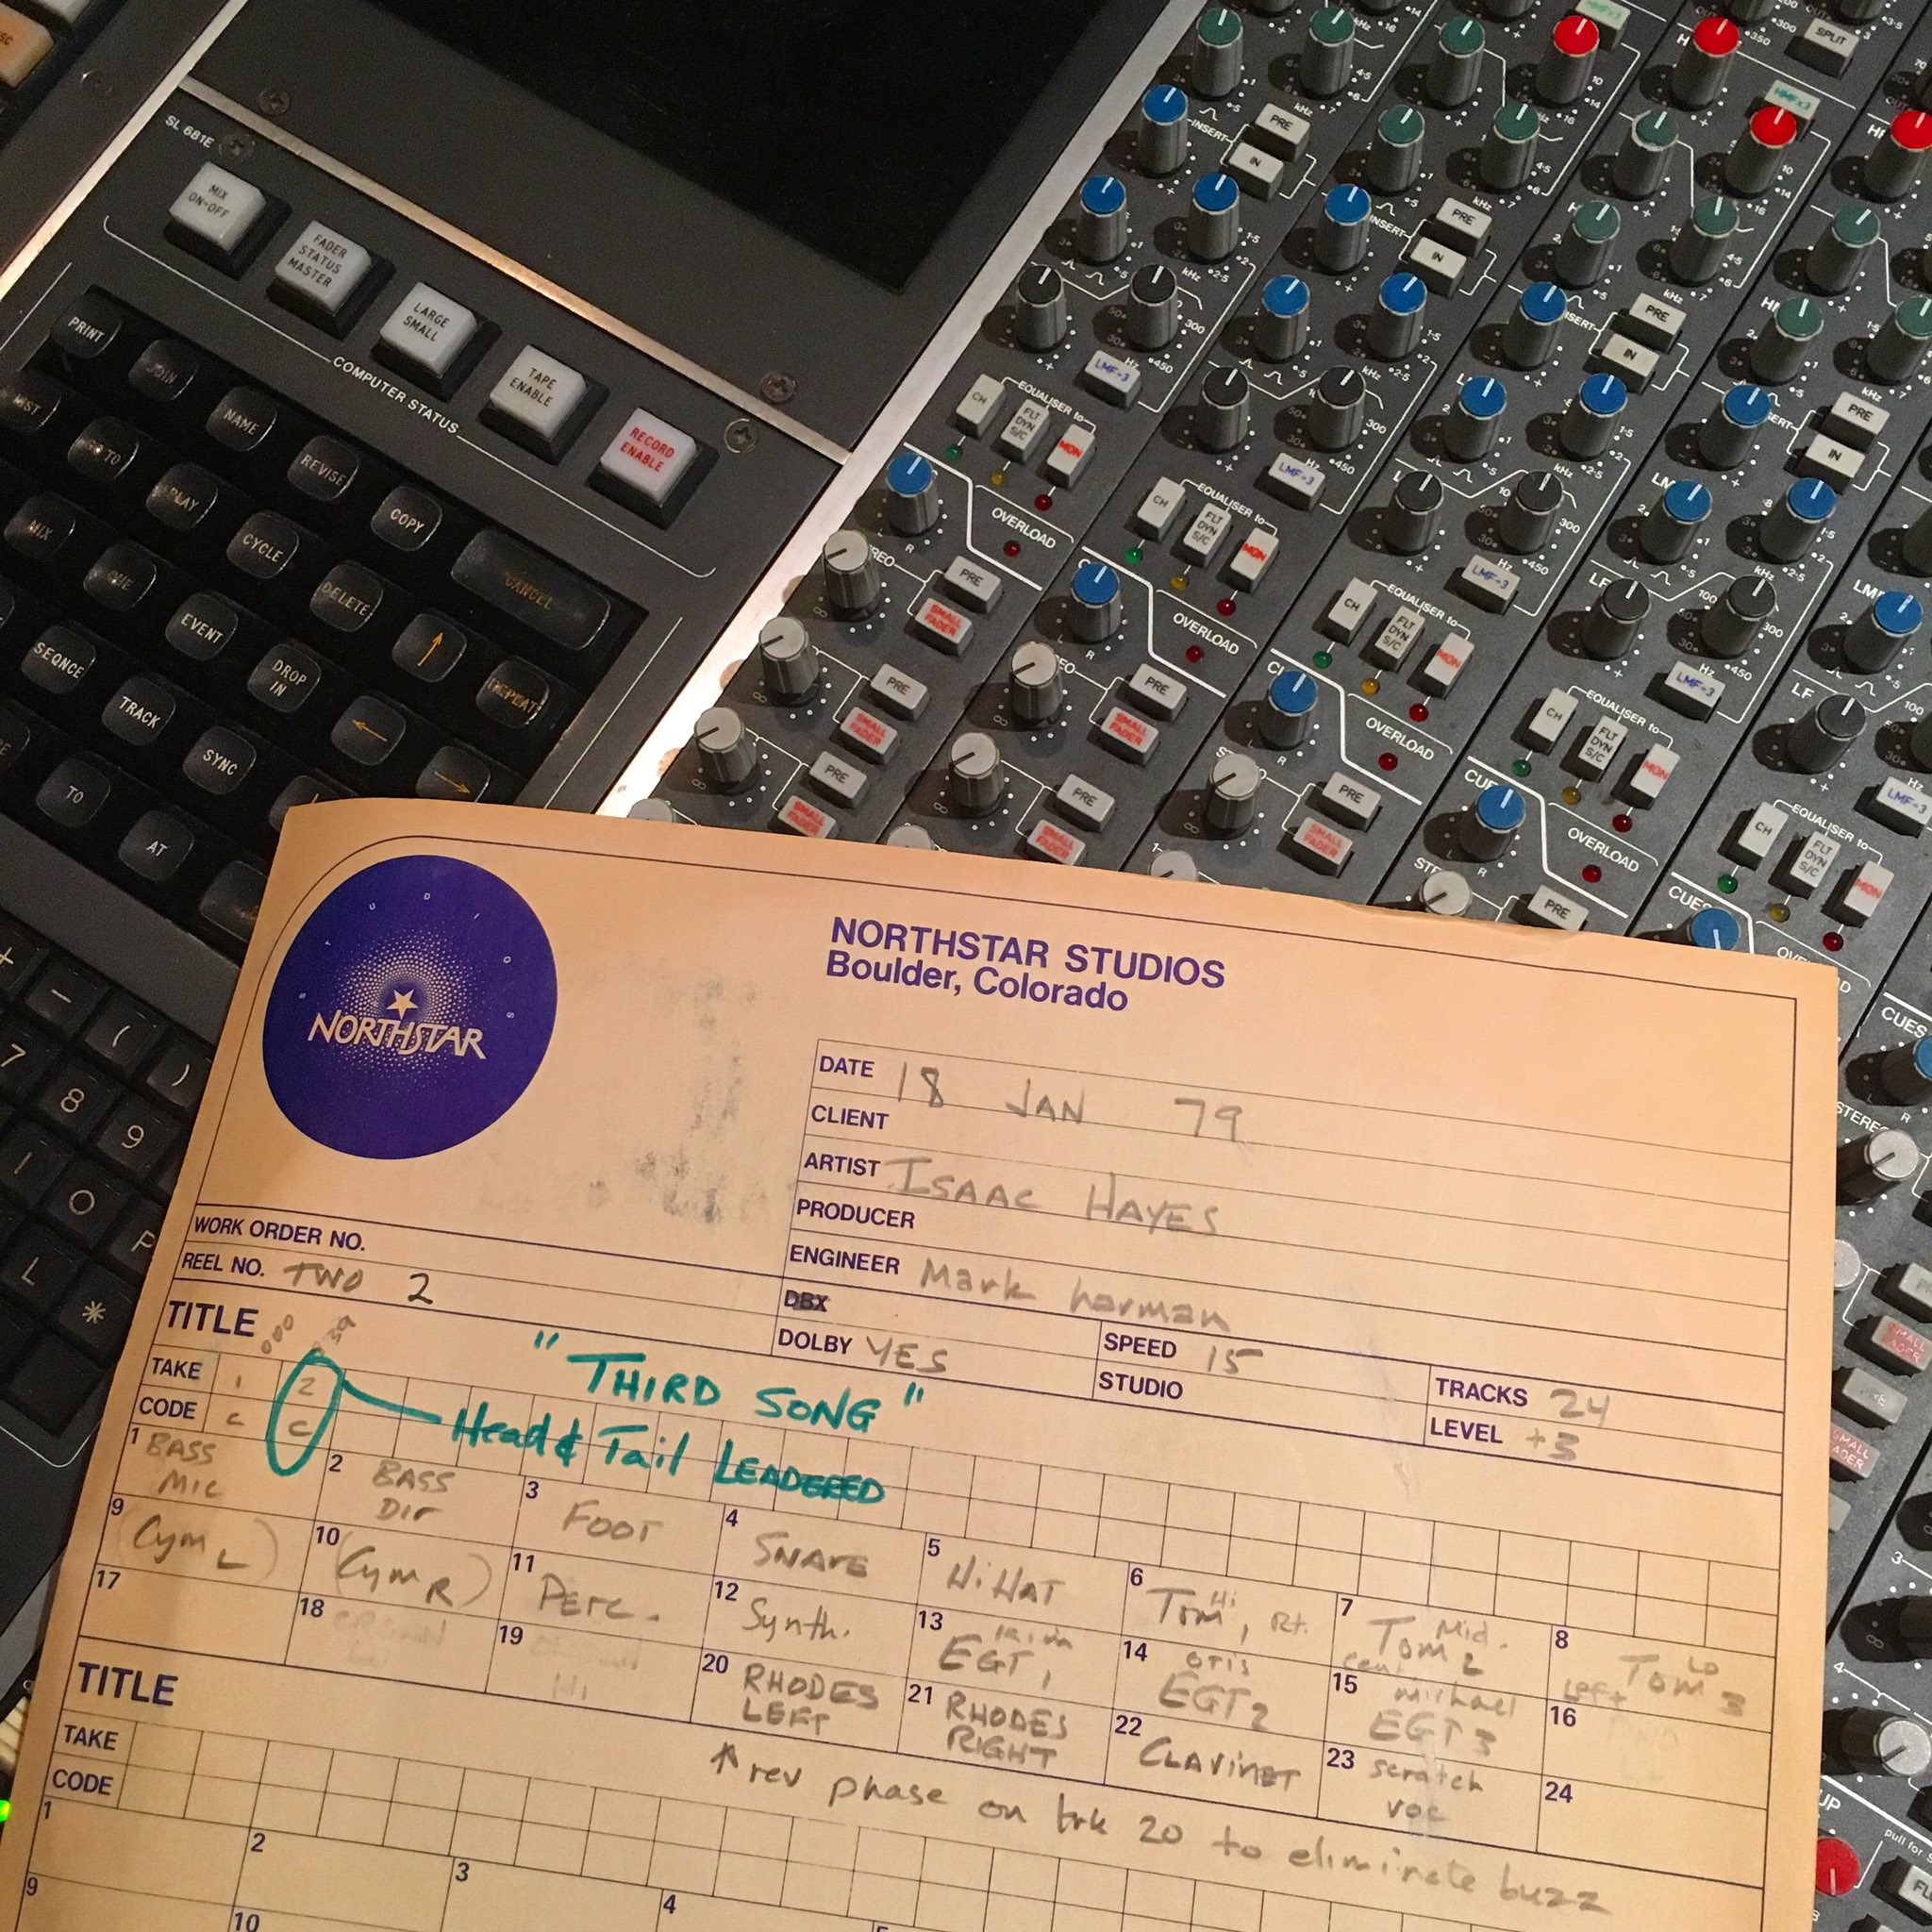 SL 681E
MIX ON-OFF
FADER STATUS MASTER
LARGE SMALL
TAPE ENABLE
RECORD ENABLE
COMPUTER STATUS
PRINT
JOIN
NAME
REVISE
COPY
CANCEL
GO TO
PLAY
CYCLE
DELETE
MIX
CUE
EVENT
DROP IN
REPEAT
SEQNCE
TRACK
SYNC
TO
AT
+ - ( )
7 8 9
SPLIT
HMF×3
INSERT
PRE
IN
kHz
Hz
LMF÷3
EQUALISER to
CH
FLT DYN S/C
MON
OVERLOAD
PRE
SMALL FADER
CUES
STEREO
LF
NORTHSTAR STUDIOS
Boulder, Colorado
STUDIOS
NORTHSTAR
DATE 18 JAN 79
CLIENT
ARTIST ISAAC HAYES
PRODUCER
ENGINEER Mark harman
WORK ORDER NO.
REEL NO. TWO 2
DBX
DOLBY YES
SPEED 15
STUDIO
TRACKS 24
LEVEL +3
TITLE 000
"THIRD SONG"
TAKE 1 2
CODE C C
Head & Tail LEADERED
1 BASS MIC
2 BASS Dir
3 FOOT
4 SNARE
5 Hi HAT
6 Tom 1 Hi, Rt.
7 Tom 2 Mid. Cent
8 Tom 3 LO Left
9 (Cym L)
10 (Cym R)
11 Perc.
12 Synth.
13 EGT 1
14 OTIS EGT 2
15 michael EGT 3
16
17
18 ORGAN
19 ORGAN HI
20 RHODES LEFT
21 RHODES RIGHT
22 CLAVINET
23 scratch voc
24
↑ rev phase on trk 20 to eliminate buzz
TITLE
TAKE
CODE
1
2
3
4
9
10